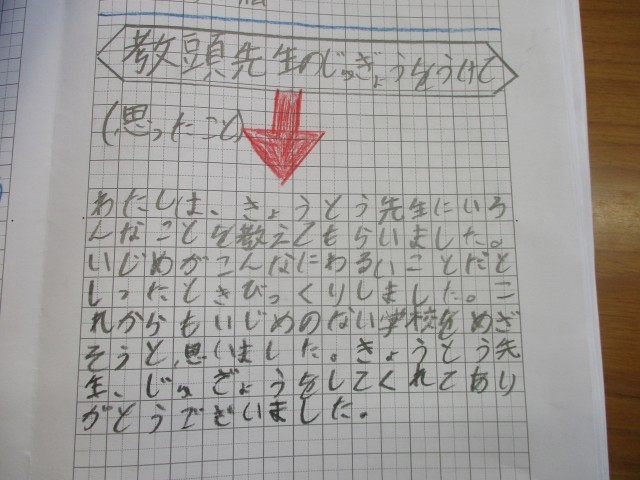 教頭先生のじゅぎょうをうけて
(思ったこと)
わたしは、きょうとう先生にいろ
んなことを教えてもらいました。
いじめがこんなにわるいことだと
しったときびっくりしました。こ
れからもいじめのない学校をめざ
そうと思いました。きょうとう先
生、じゅぎょうをしてくれてあり
がとうございました。